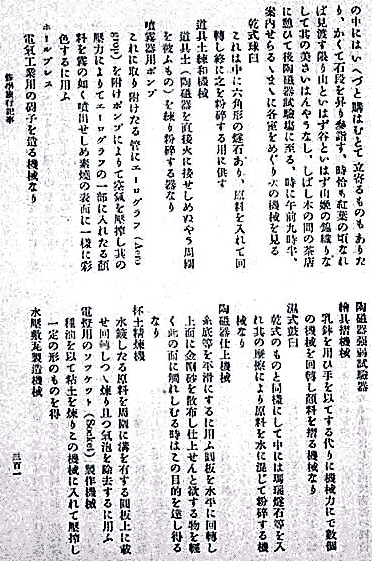 の中には いへづと購はむとて立寄るものもありた
り、かくて石段を昇り參詣す、時恰も紅葉の頃なれ
ば見渡す限り山といはず谷といはず山姫の錦織りな
して其の美さいはんやうなし、しばし木の間の茶店
に憩ひて後陶磁器試驗塲に至る、時に午前九時半、
案内せらるゝまゝに各室をめぐり次の機械を見る
乾式球臼
これは中に六角形の燧石あり、原料を入れて回
轉し終に之を粉碎する用に供す
道具土練和機械
道具土（陶磁器を直接火に接せしめぬやう周圍
を被ふもの）を練り粉碎する器なり
噴霧器用ポンプ
これに取り附けたる管にエーログラフ（Aero
grop）を附けポンプによりて空氣を壓搾し其の
壓力によりてエーログラフの一部に入れたる顔
料を霧の如く噴出せしめ素燒の表面に一樣に彩
色するに用ふ
ホールプレス
電氣工業用の碍子を造る機械なり
陶磁器强弱試驗器
繪具摺機械
乳鉢を用ひ手を以てする代りに機械力にて數個
の機械を回轉し顔料を摺る機械なり
濕式鼓臼
乾式のものと同樣にして中には瑪瑙燧石等を入
れ其の摩擦により原料を水に混じて粉碎する機
械なり
陶磁器仕上機械
糸底等を平滑にするに用ふ圓板を水平に回轉し
上面に金剛砂を散布し仕上せんと欲する物を輕
く此の面に觸れしむる時はこの目的を達し得る
なり
坏土精煉機
水簸したる原料を周圍に溝を有する圓板上に載
せ回轉しつゝ煉り且つ氣泡を除去するに用ふ
電燈用のソツケツト（Socket）製作機械
種油を以て粘土を煉りこの機械に入れて壓搾し
一定の形のものを得
水壓敷瓦製造機械
修學旅行記事
三百一